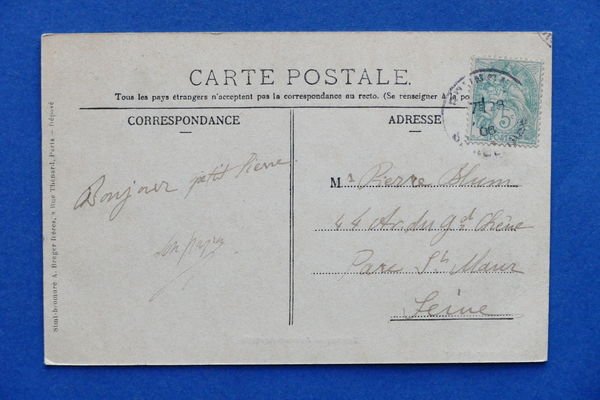 CARTE POSTALE
Tous les pays étrangers n'acceptent pas la correspondance au recto. (Se renseigner à
CORRESPONDANCE
ADRESSE
Bonjour petit Pierre
ton papa
Mr Pierre Blum
44 Av du Gd Chêne
Parc St Maur
Seine
Simi-bromure A. Breger frères, 9 Rue Thénard, Paris — Déposé
5c
06